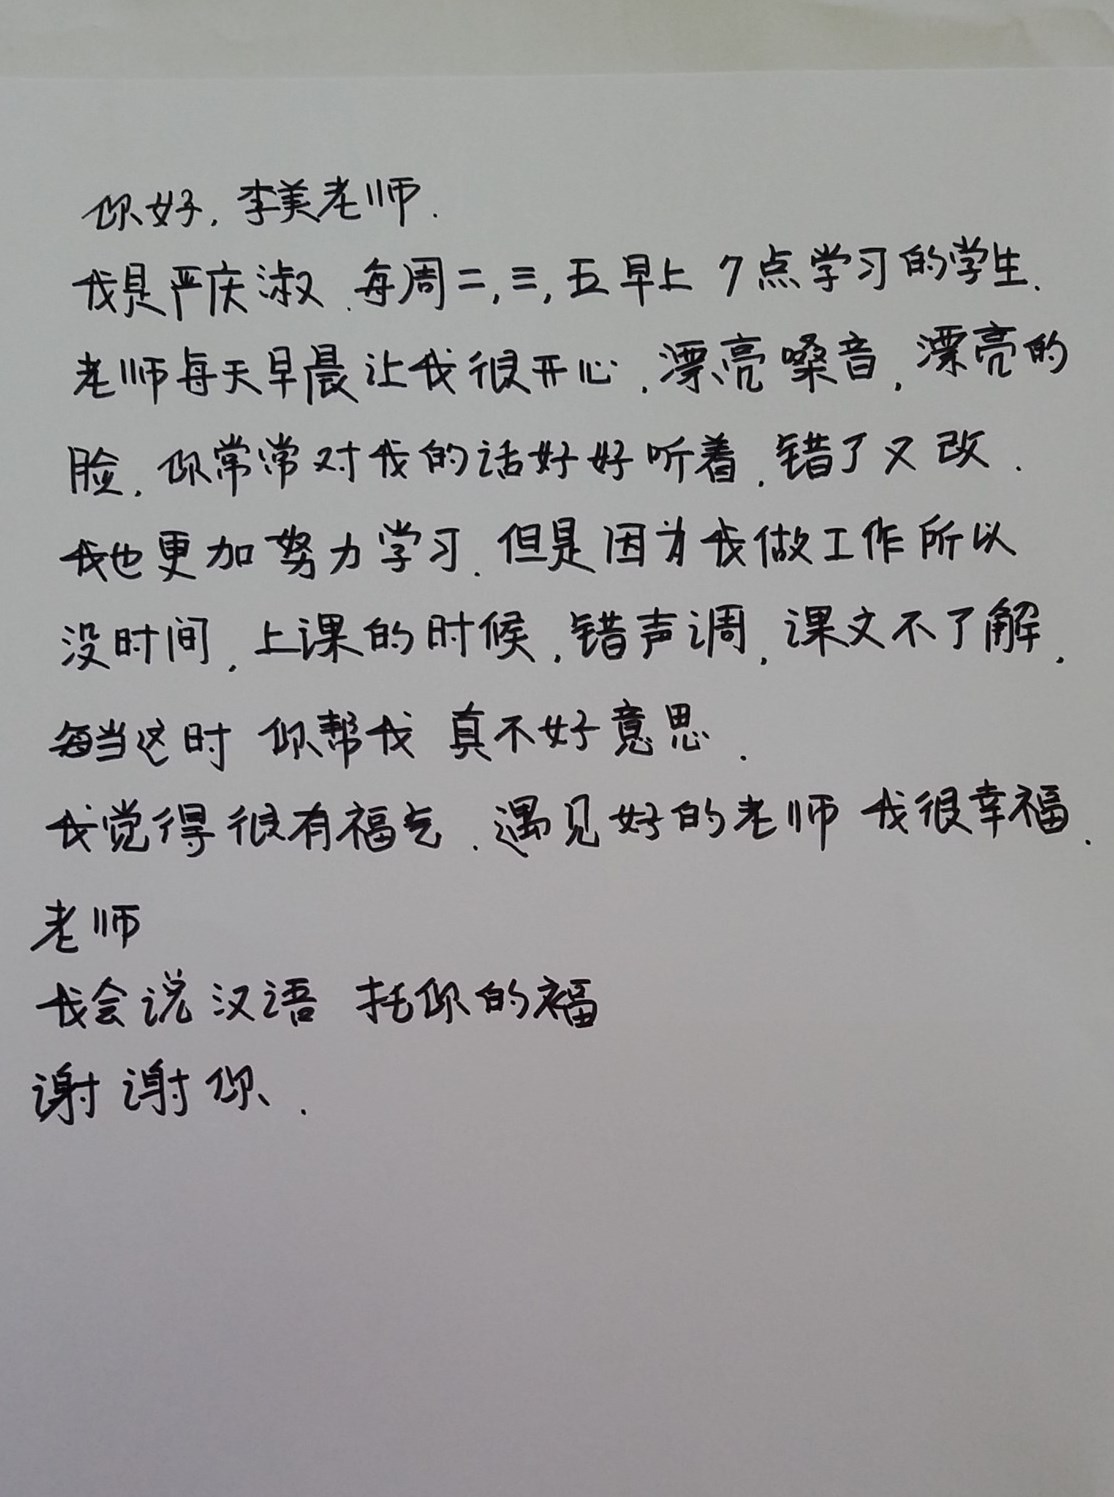 你好, 李美老师.
我是严庆淑. 每周二,三,五早上 7点学习的学生.
老师每天早晨让我很开心. 漂亮嗓音, 漂亮的
脸. 你常常对我的话好好听着. 错了又改.
我也更加努力学习. 但是因为我做工作所以
没时间. 上课的时候, 错声调, 课文不了解.
每当这时 你帮我 真不好意思.
我觉得很有福气. 遇见好的老师 我很幸福.
老师
我会说汉语 托你的福
谢谢你.